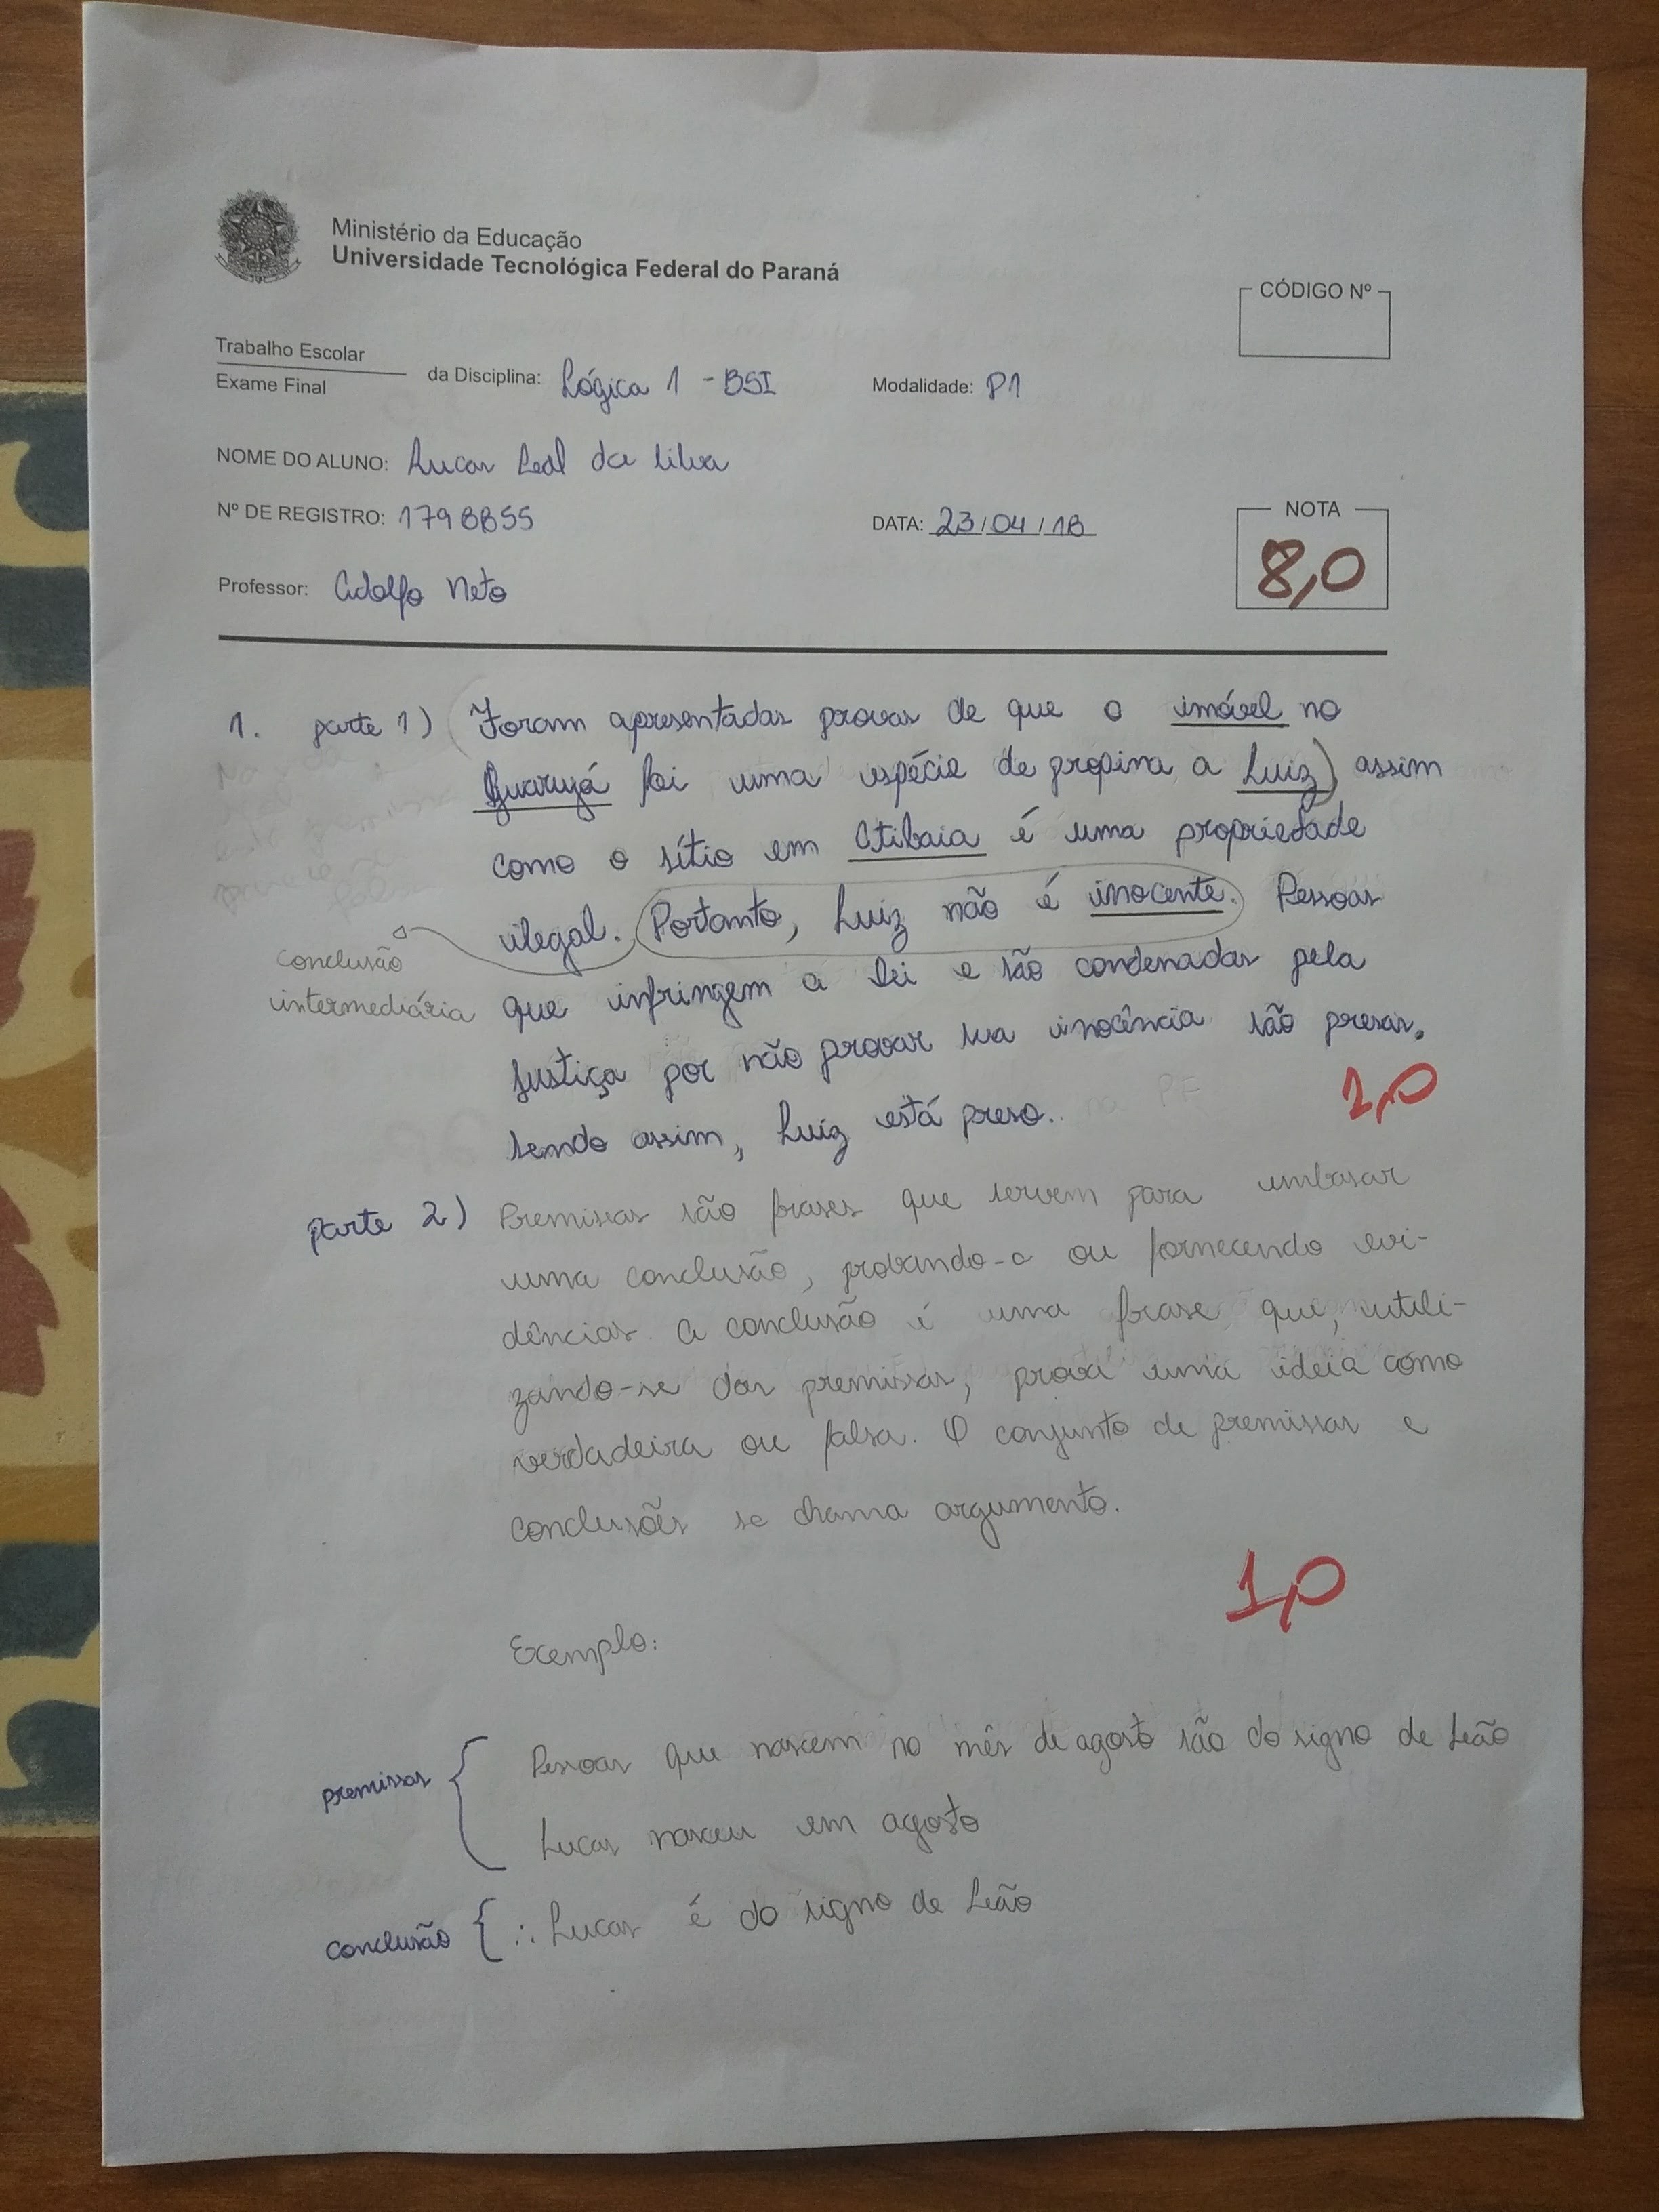 Ministério da Educação
Universidade Tecnológica Federal do Paraná
CÓDIGO Nº
Trabalho Escolar
Exame Final
da Disciplina: Lógica 1 - BSI
Modalidade: P1
NOME DO ALUNO: Lucas Leal da Silva
Nº DE REGISTRO: 1798855
DATA: 23/04/18
NOTA
8,0
Professor: Adolfo Neto
1. parte 1) (Foram apresentadas provas de que o imóvel no
Guarujá foi uma espécie de propina a Luiz) assim
como o sítio em Atibaia é uma propriedade
ilegal. Portanto, Luiz não é inocente. Pessoas
conclusão
intermediária
que infringem a lei e são condenadas pela
justiça por não provar sua inocência são presas.
Sendo assim, Luiz está preso.
2,0
parte 2) Premissas são frases que servem para embasar
uma conclusão, provando-a ou fornecendo evi-
dências. A conclusão é uma frase que, utili-
zando-se das premissas, prova uma ideia como
verdadeira ou falsa. O conjunto de premissas e
conclusões se chama argumento.
1,0
Exemplo:
premissas { Pessoas que nascem no mês de agosto são do signo de Leão
Lucas nasceu em agosto
conclusão { ∴ Lucas é do signo de Leão